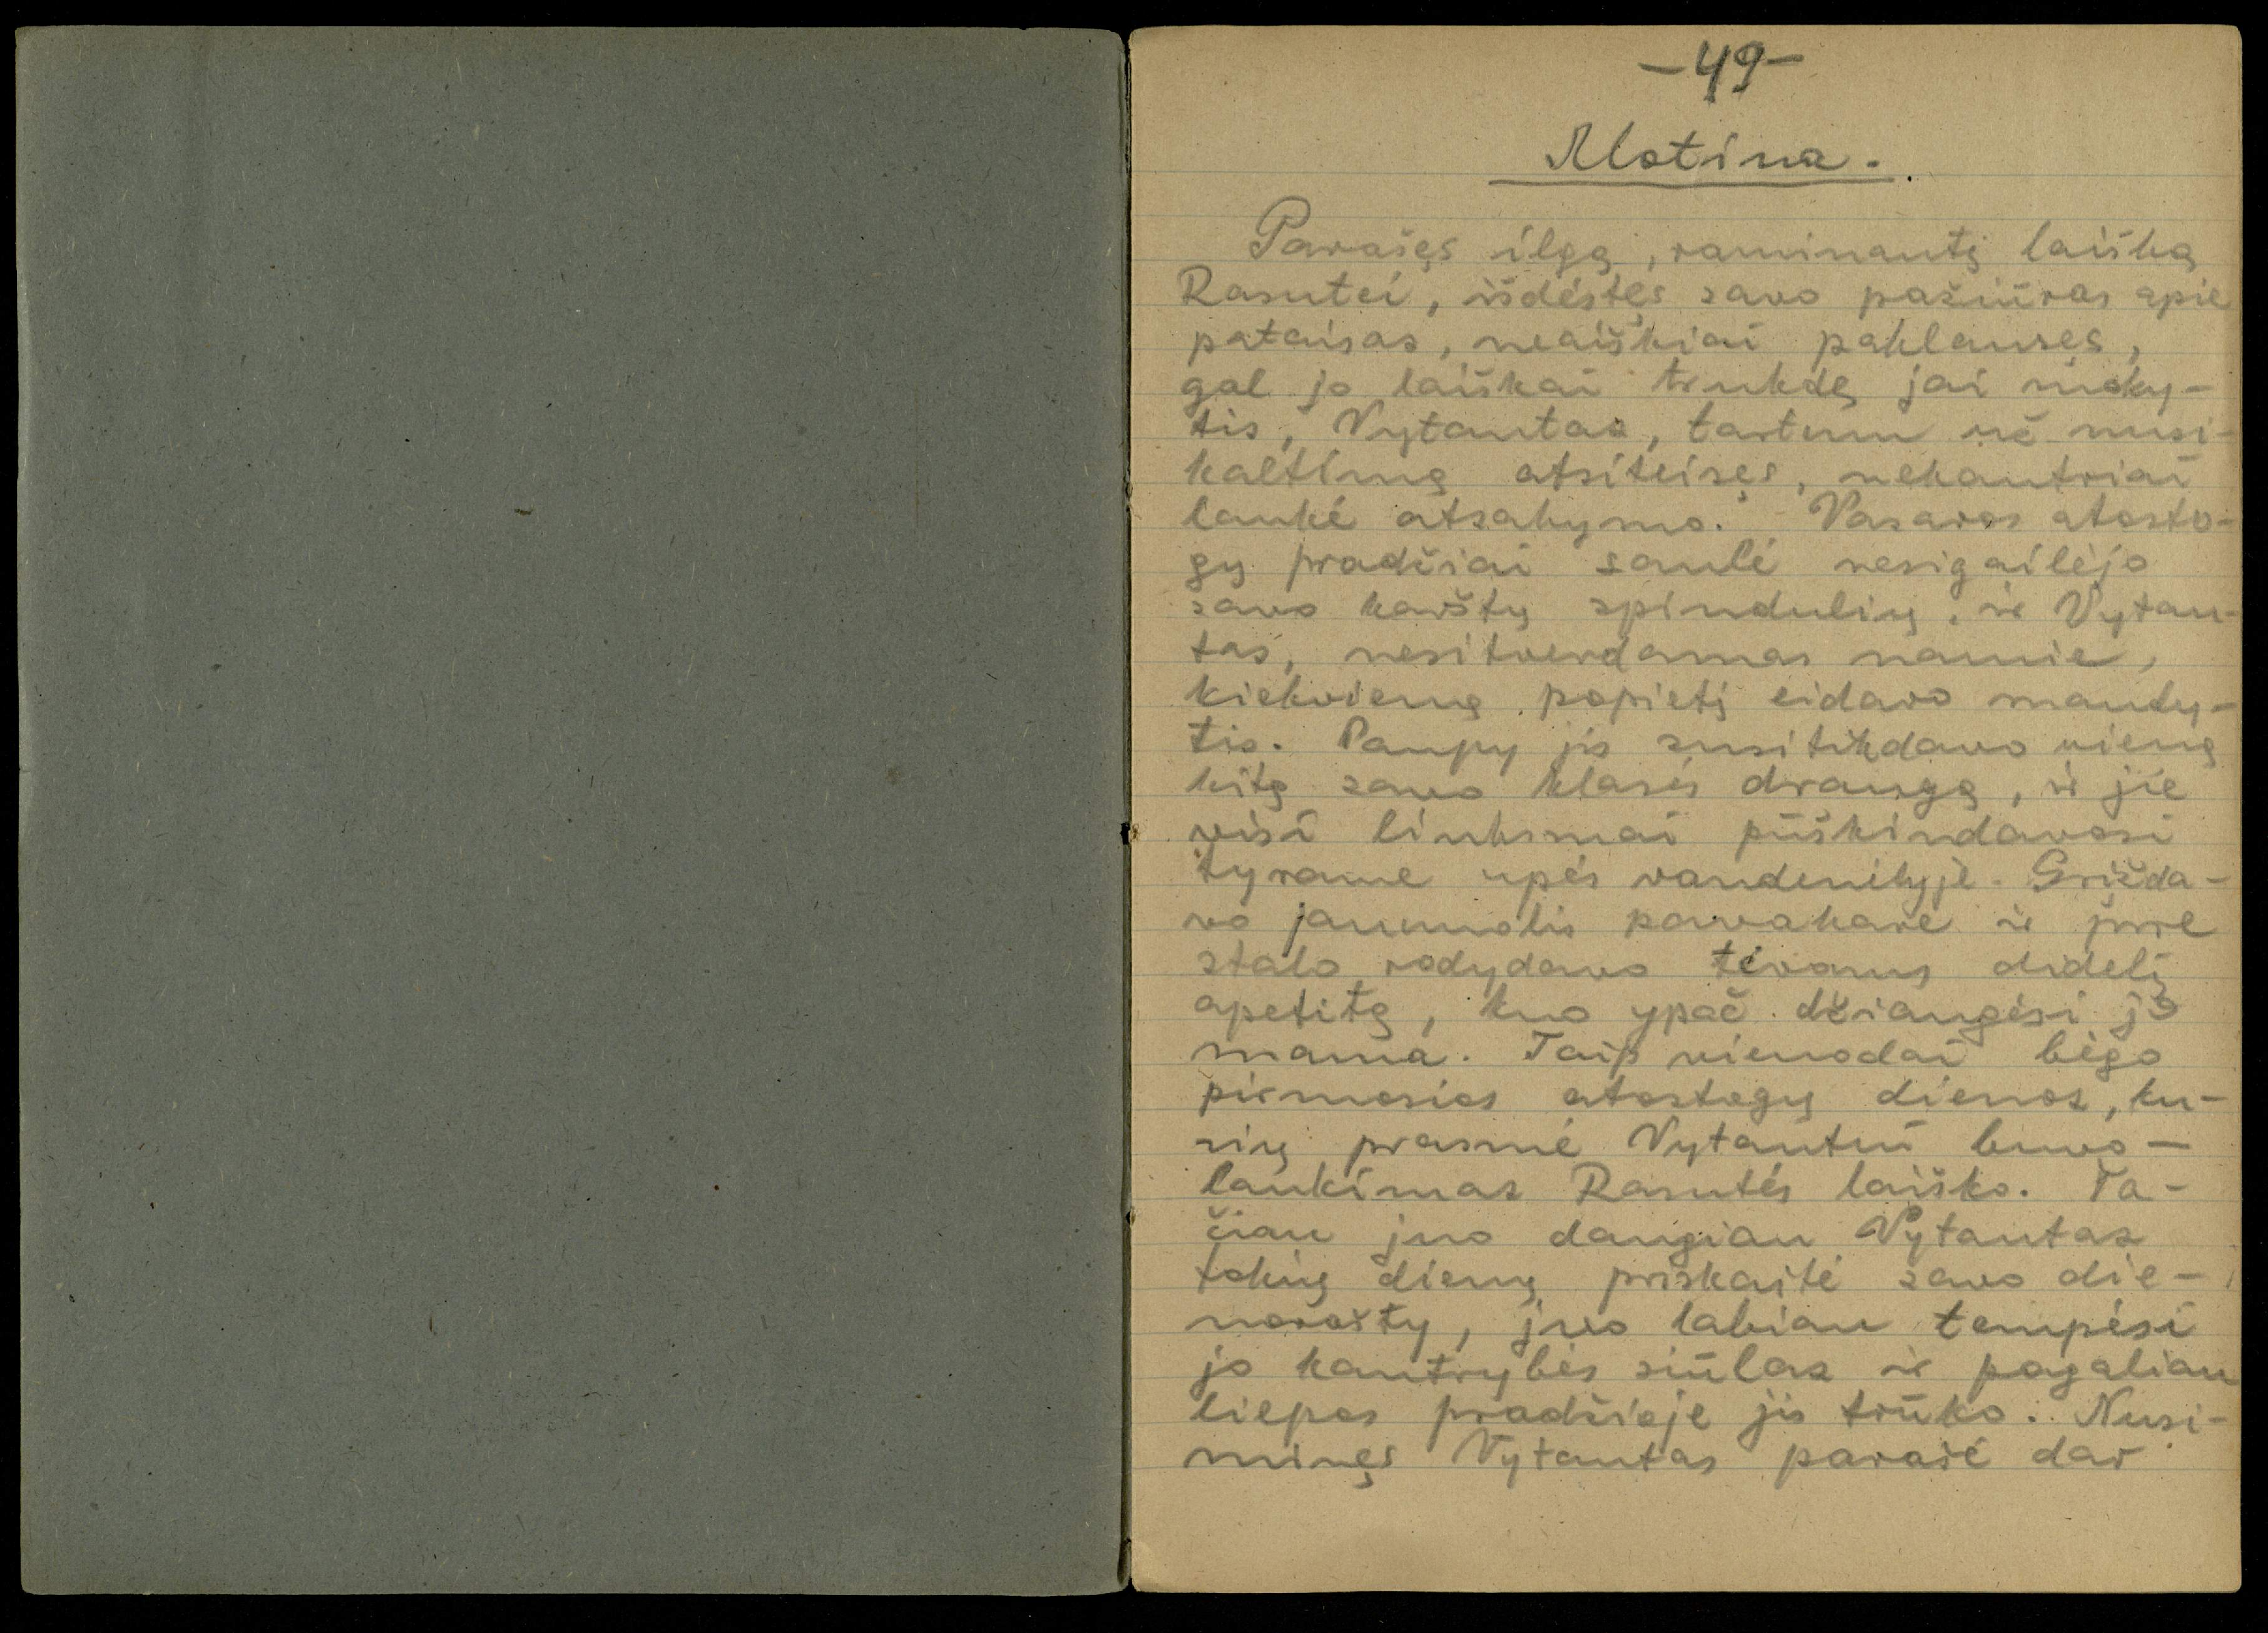 -49-
Motina.
Parašęs ilgą, raminantį laišką
Rasutei, išdėstęs savo pažiūras apie
pataisas, neaiškiai paklausęs,
gal jo laiškai trukdę jai moky-
tis, Vytautas, tartum už nusi-
kaltimą atsiteisęs, nekantriai
laukė atsakymo. Vasaros atosto-
gų pradžiai saulė nesigailėjo
savo karštų spindulių, ir Vytau-
tas, nesitverdamas namie,
kiekvieną popietį eidavo maudy-
tis. Paupy jis susitikdavo vieną
kitą savo klasės draugą, ir jie
visi linksmai pūškindavosi
tyrame upės vandenėlyje. Grįžda-
vo jaunuolis pavakare ir prie
stalo rodydavo tėvams didelį
apetitą, kuo ypač džiaugėsi jo
mama. Taip vienodai bėgo
pirmosios atostogų dienos, ku-
rių prasmė Vytautui buvo -
laukimas Rasutės laiško. Ta-
čiau juo daugiau Vytautas
tokių dienų priskaitė savo die-
norašty, juo labiau tempėsi
jo kantrybės siūlas ir pagaliau
liepos pradžioje jis trūko. Nusi-
minęs Vytautas parašė dar